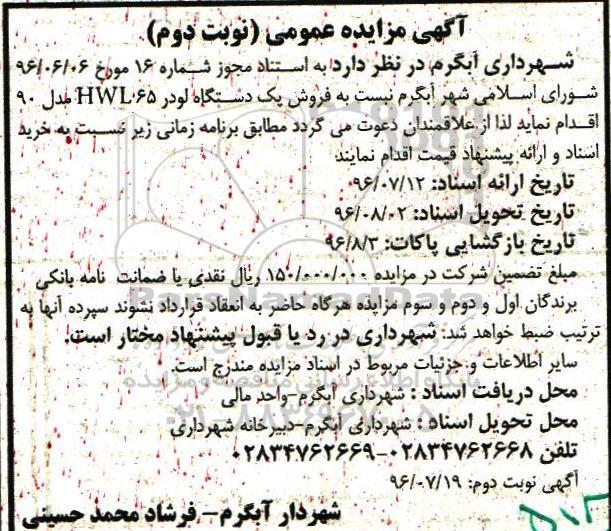 آگهی مزایده عمومی (نوبت دوم)
شهرداری آبگرم در نظر دارد به استناد مجوز شماره ۱۶ مورخ ۹۶/۰۶/۰۶
شورای اسلامی شهر آبگرم نسبت به فروش یک دستگاه لودر HWL۶۵ مدل ۹۰
اقدام نماید لذا از علاقمندان دعوت می گردد مطابق برنامه زمانی زیر نسبت به خرید
اسناد و ارائه پیشنهاد قیمت اقدام نمایند
تاریخ ارائه اسناد: ۹۶/۰۷/۱۲
تاریخ تحویل اسناد: ۹۶/۰۸/۰۲
تاریخ بازگشایی پاکات: ۹۶/۸/۳
مبلغ تضمین شرکت در مزایده ۱۵۰/۰۰۰/۰۰۰ ریال نقدی یا ضمانت نامه بانکی
برندگان اول و دوم و سوم مزایده هرگاه حاضر به انعقاد قرارداد نشوند سپرده آنها به
ترتیب ضبط خواهد شد. شهرداری در رد یا قبول پیشنهاد مختار است.
سایر اطلاعات و جزئیات مربوط در اسناد مزایده مندرج است.
محل دریافت اسناد : شهرداری آبگرم-واحد مالی
محل تحویل اسناد : شهرداری آبگرم-دبیرخانه شهرداری
تلفن ۰۲۸۳۴۷۶۲۶۶۸-۰۲۸۳۴۷۶۲۶۶۹
آگهی نوبت دوم: ۹۶/۰۷/۱۹
شهردار آبگرم- فرشاد محمد حسینی